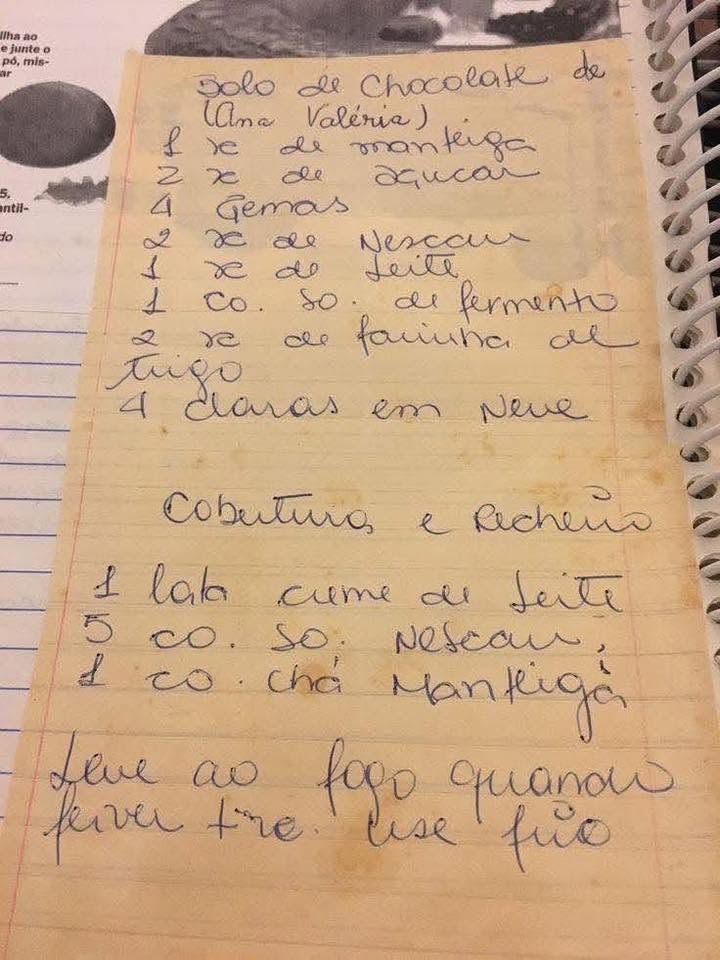 lha ao
e junte o
pó, mis-
ar
5.
antil-
do
Bolo de Chocolate de
(Ana Valéria)
1 x de manteiga
2 x de açucar
4 Gemas
2 x de Nescau
1 x de Leite
1 co. so. de fermento
2 x de farinha de
trigo
4 claras em Neve
Cobertura e Recheio
1 lata creme de Leite
5 co. so. Nescau,
1 co. chá Manteiga
Leve ao fogo quando
ferver tire. use frio